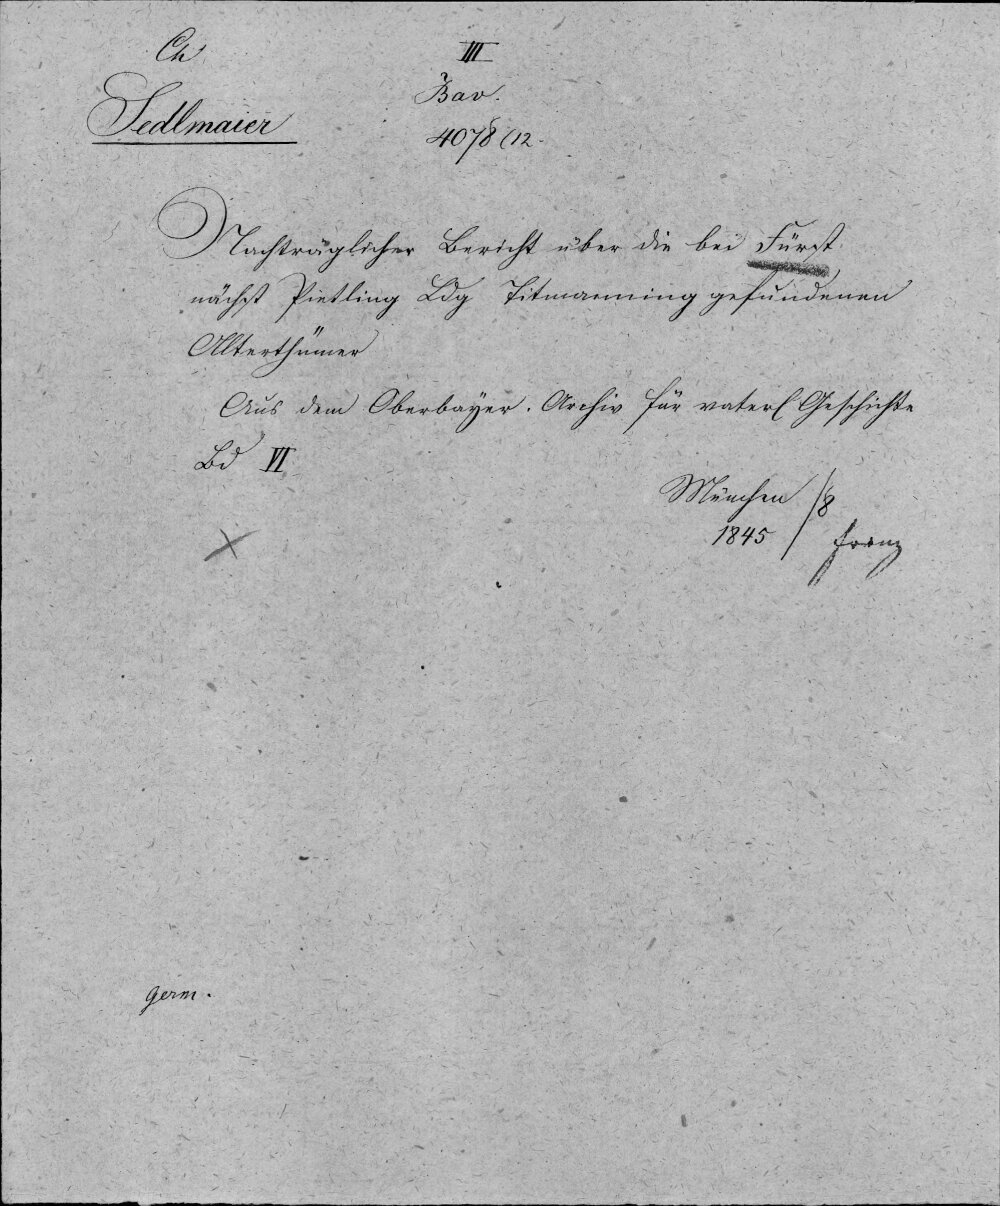 Ch
III
Sedlmaier
Bav.
4078 (12.
Nachträglicher Bericht über die bei Fürst
nächst Pietling Ldg Titmanning gefundenen
Alterthümer
Aus dem Oberbayer. Archiv für vaterl Geschichte
Bd VI
München / 8
1845 / franz
germ.